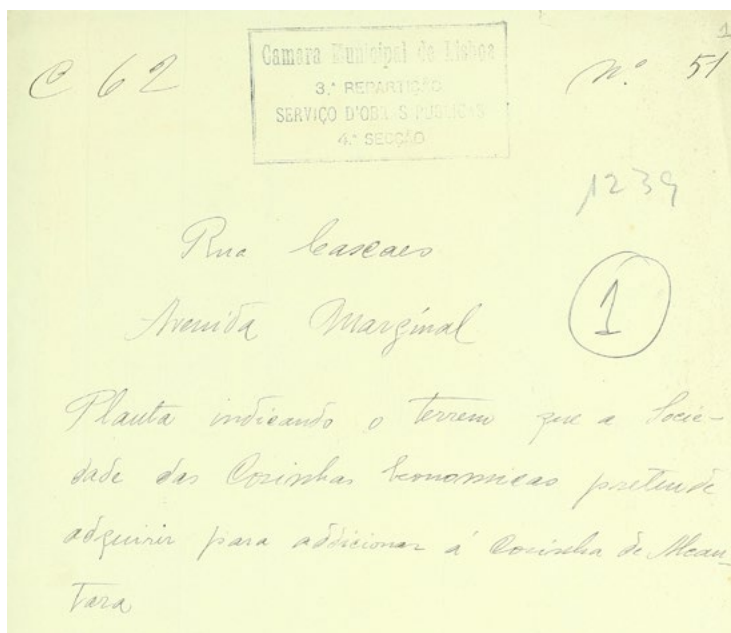 1
C 62
Camara Municipal de Lisboa
3.ª REPARTIÇÃO
SERVIÇO D'OBRAS PUBLICAS
4.ª SECÇÃO
Nº 51
1239
Rua Cascaes
Avenida Marginal
1
Planta indicando o terreno que a Socie-
dade das Cosinhas Economicas pretende
adquirir para addicionar á Cosinha de Alcan-
tara